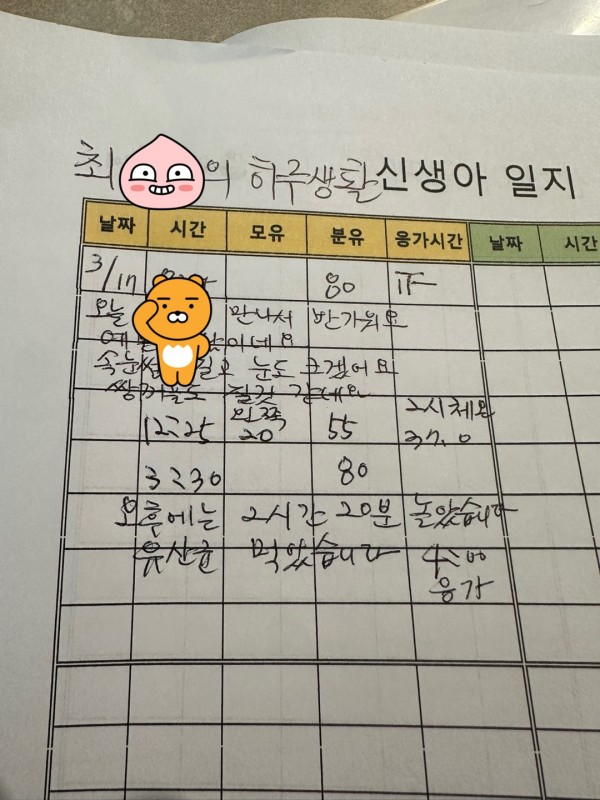 최 의 하루생활 신생아 일지
날짜 시간 모유 분유 응가시간 날짜 시간
80
오늘 만나서 반가워요
속눈 눈도 크겠어요
12:25 왼쪽 20 55 2시체온 37.0
3:30 80
오후에는 2시간 20분 놀았습니다
유산균 먹었습니다 4:00 응가